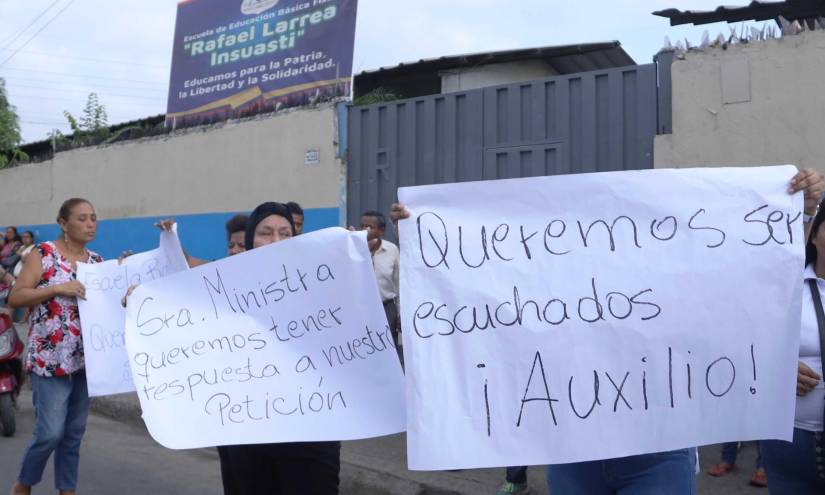 Escuela de Educación Básica
"Rafael Larrea
Insuasti"
Educamos para la Patria,
la Libertad y la Solidaridad.
Sra. Ministra
queremos tener
respuesta a nuestra
Petición
Queremos ser
escuchados
¡Auxilio!